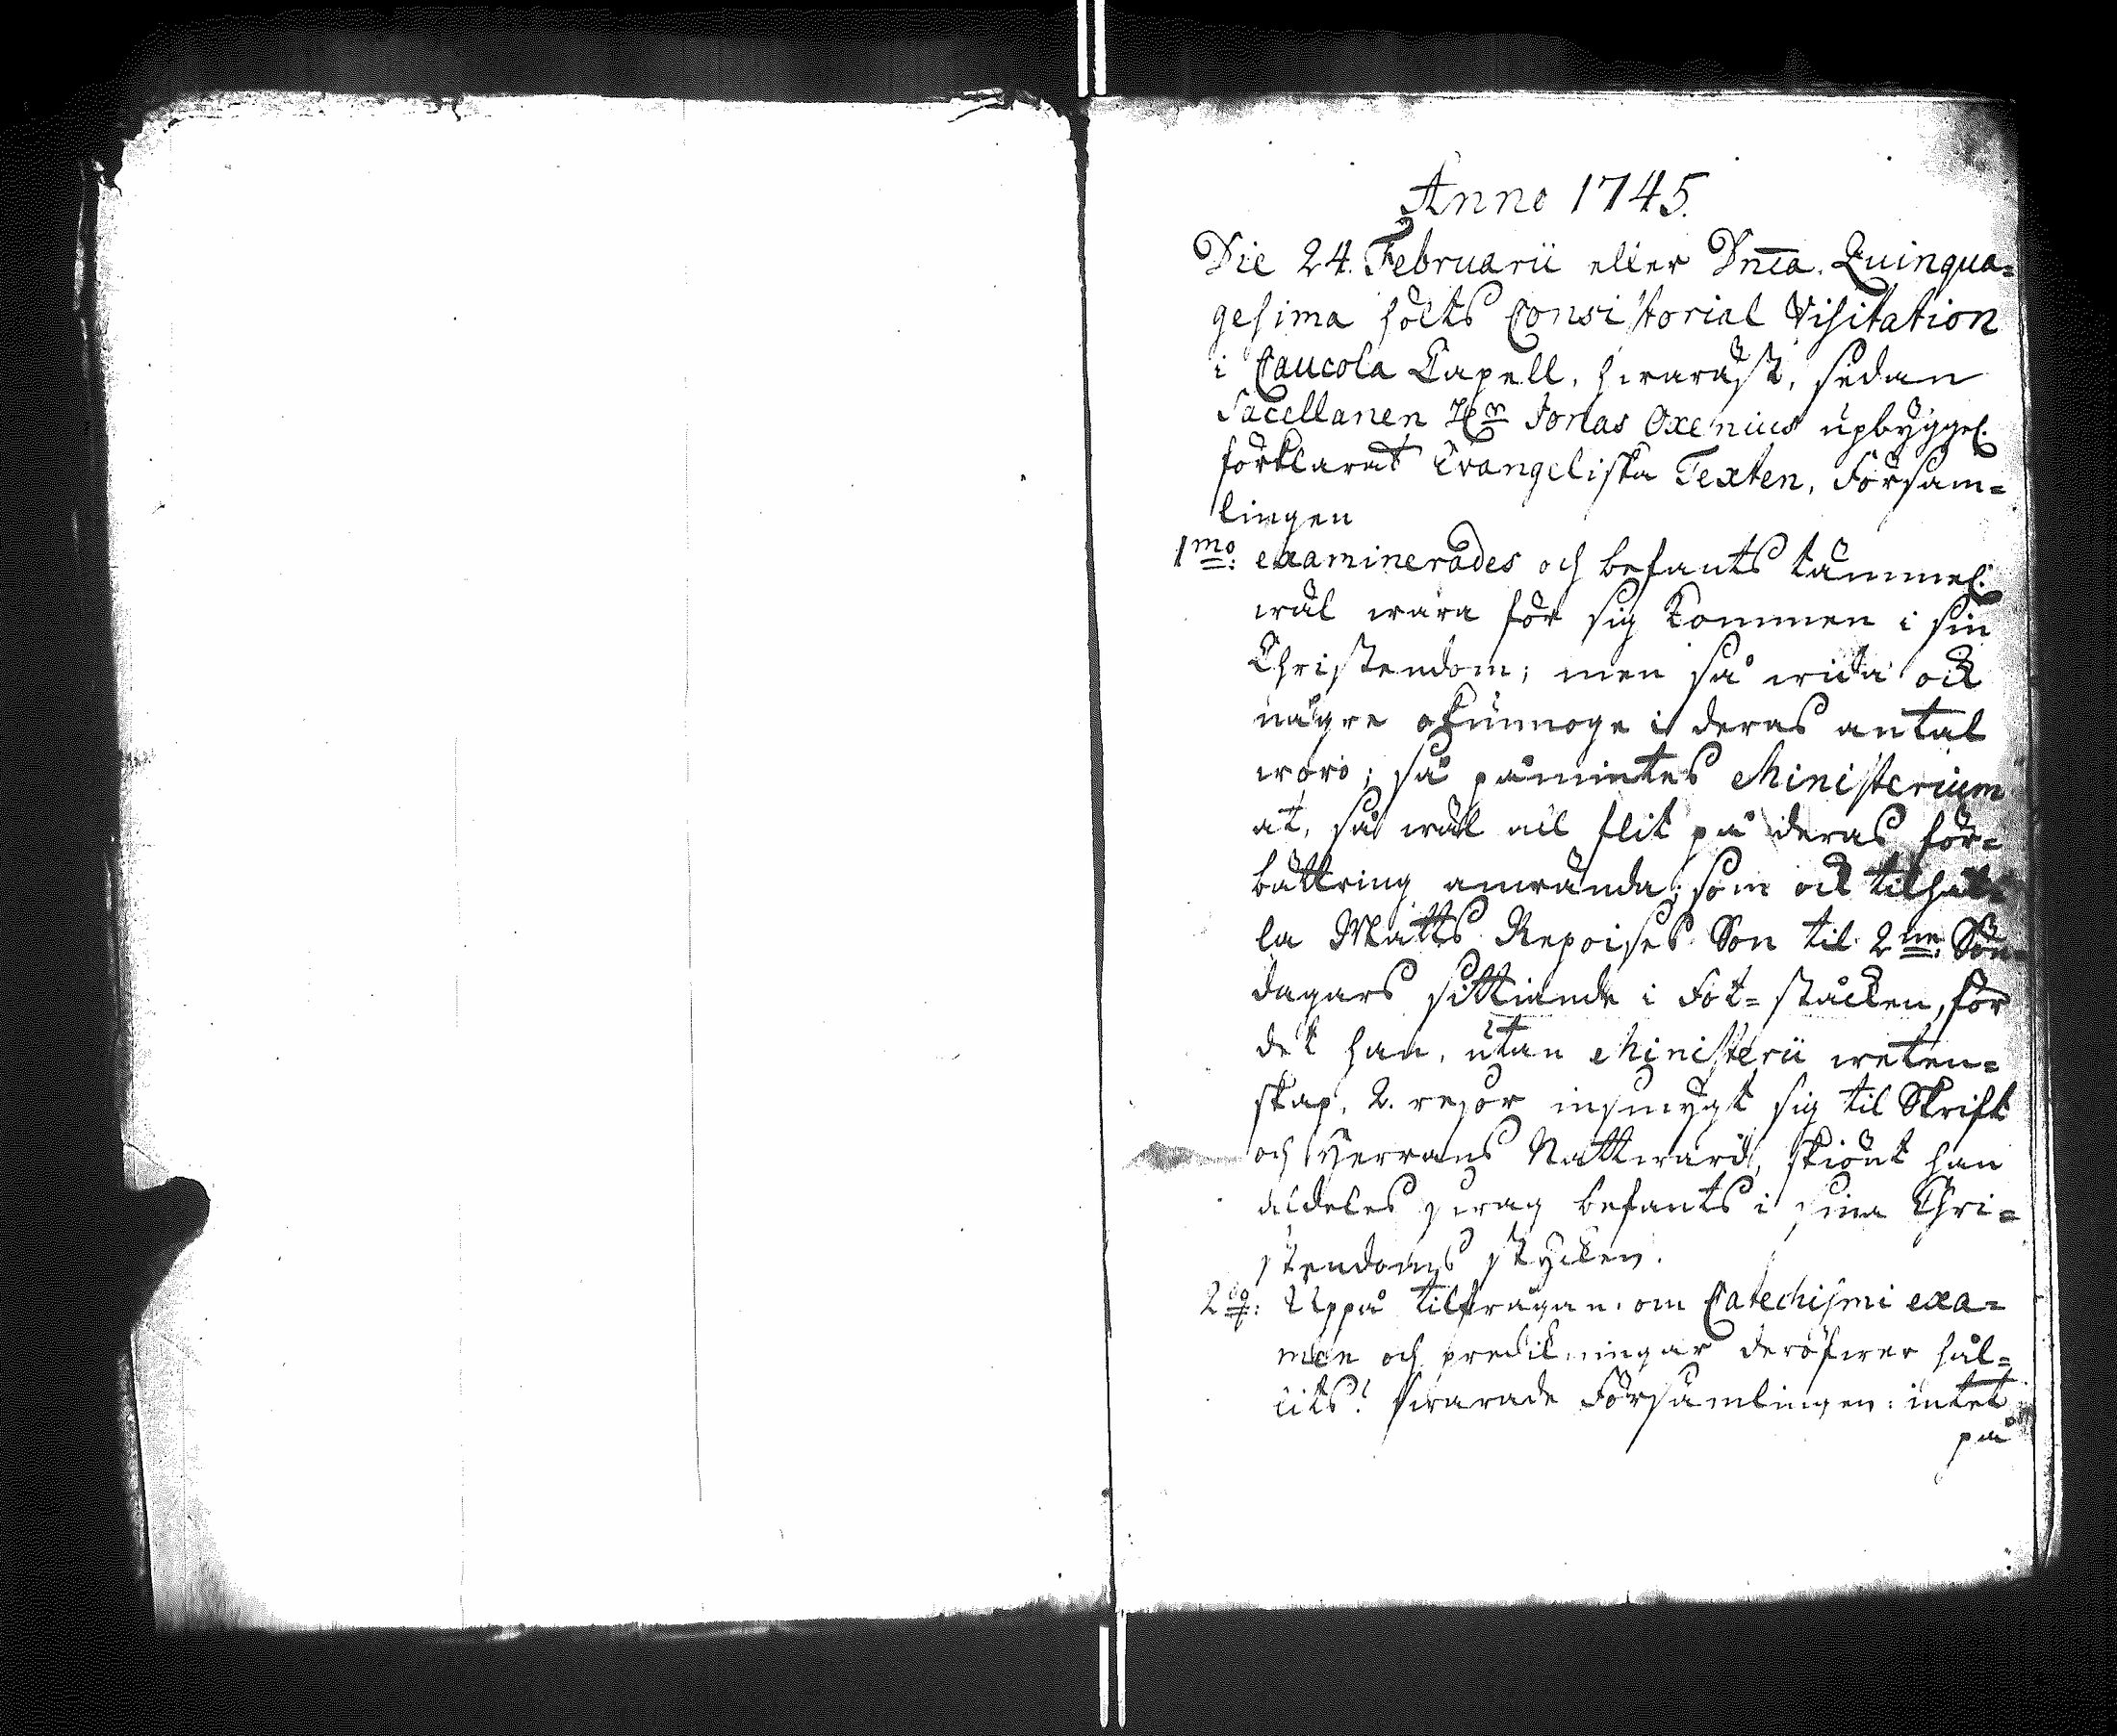 Anno 1745.
Die 24. Februarii eller Dnica. Quinqua=
gesima hölts Consistorial Visitation
i Caucola Capell, hwaräst, sedan
Sacellanen Hr Jonas Oxenius upbyggel.
förklarat Evangeliska Texten, Försam=
lingen
1mo: examinerades och befants tämmel.
wäl wara för sig kommen i sin
Christendom; men så wida ock
någre okunnoge i deras antal
woro; så påmintes Ministerium
at, så wäl all flit på deras för=
bättring anwända, som ock tilhål=
la Matts Repoises Son til 2ne Sön=
dagars sittiande i Fot=stäcken, för
det han, utan Ministerii weten=
skap, 2. resor insmygt sig til Skrift
och Herrans Nattward, skiönt han
aldeles swag befants i sina Chri=
stendoms stycken.
2do: Uppå tilfrågan, om Catechismi exa=
men och predikningar deröfwer hål=
lits? swarade Församlingen: intet
på